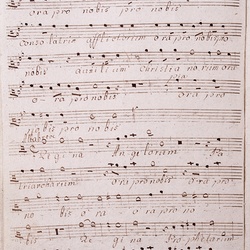 ora pro nobis pro nobis
Consolatrix afflictorum ora pro nobis
nobis auxilium Christianorum ora
o-ra pro nobis ora pro
nobis pro nobis
Regina Angelorum Pa
triarcharum ora pro nobis ora pro
no bis o ra ora pro no
bis Regina Prophetarum